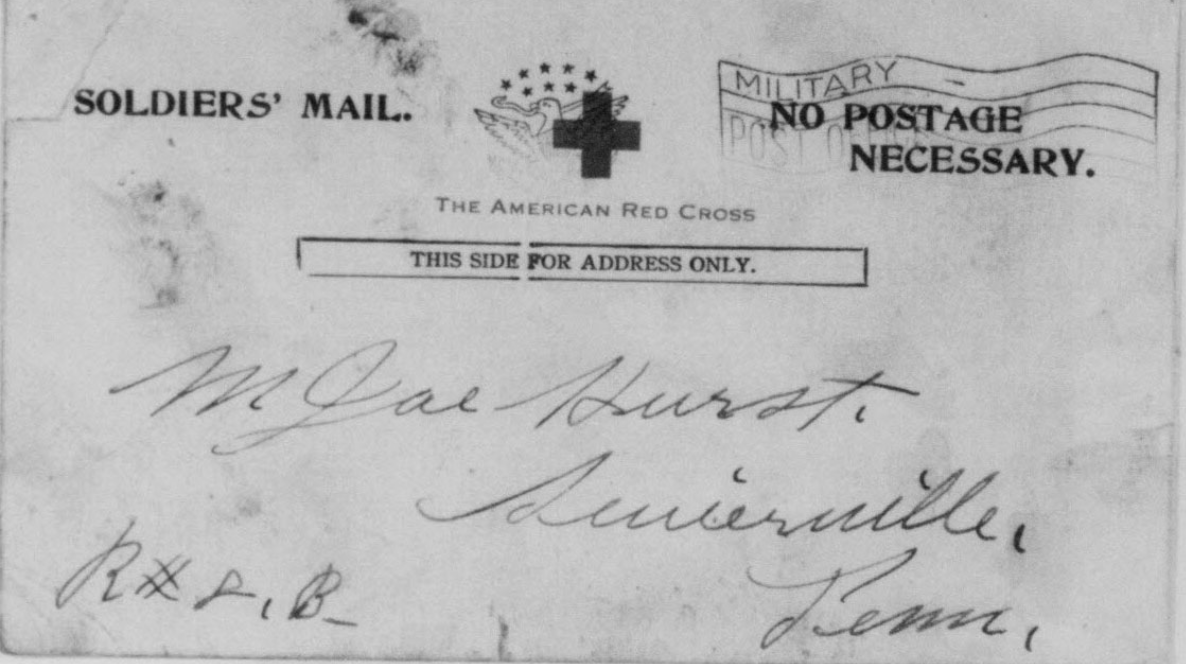 SOLDIERS' MAIL.
MILITARY
POST
NO POSTAGE
NECESSARY.
THE AMERICAN RED CROSS
THIS SIDE FOR ADDRESS ONLY.
M Joe Hurst.
Sevierville,
Tenn,
R# 2, B